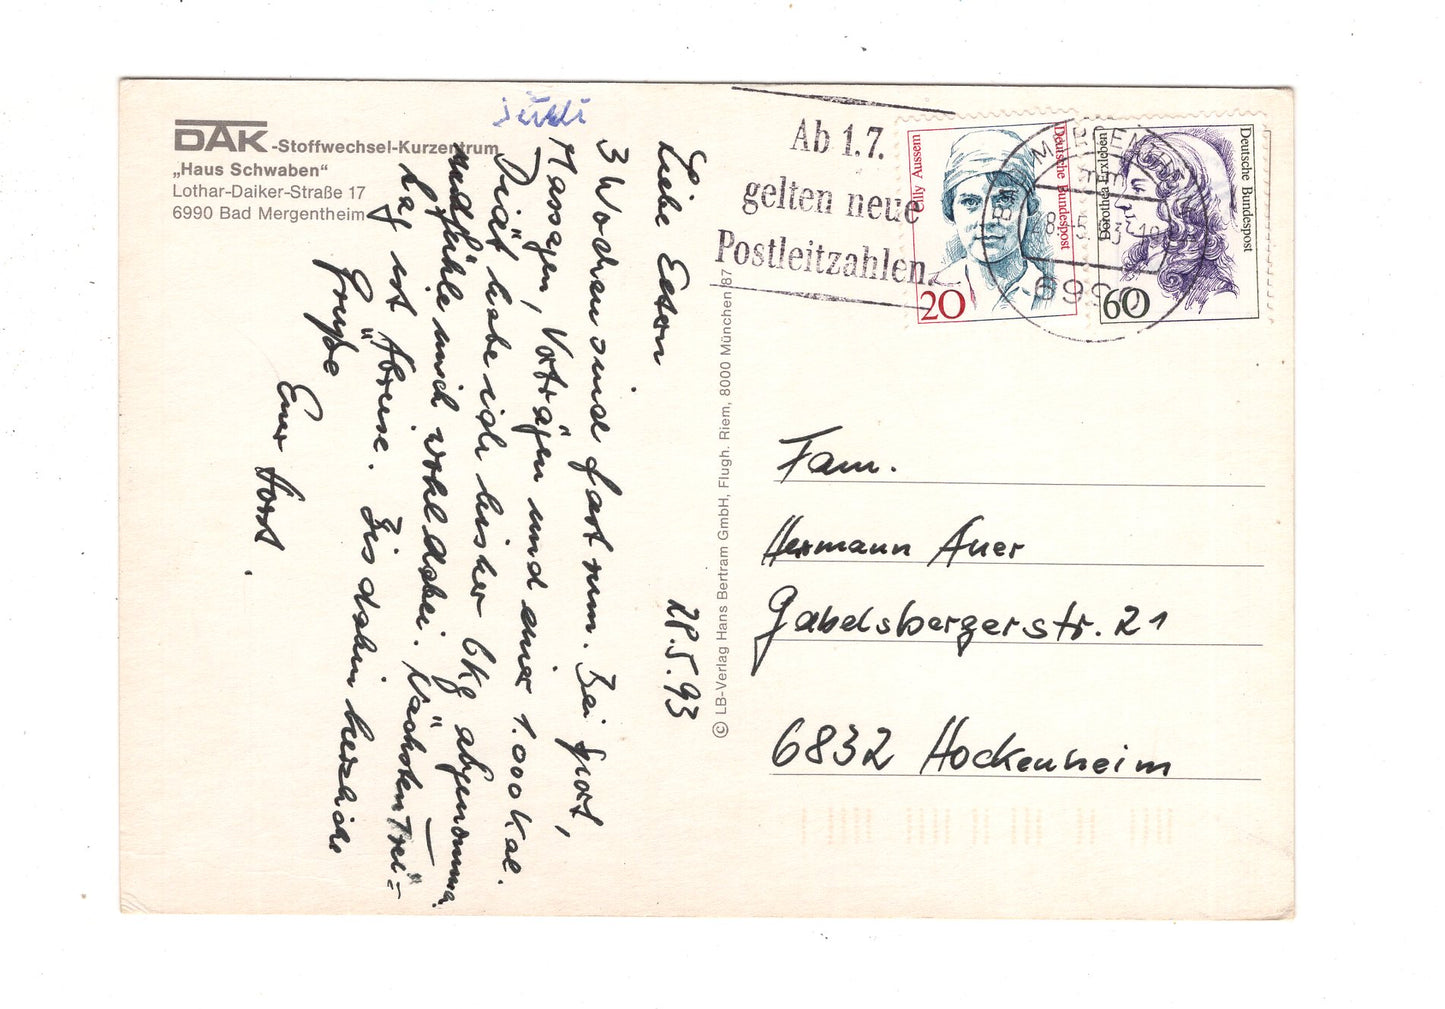 DAK-Stoffwechsel-Kurzentrum
„Haus Schwaben“
Lothar-Daiker-Straße 17
6990 Bad Mergentheim
Liebe Eltern 28.5.93
3 Wochen sind fast rum. Bei Sport,
Massagen, Vorträgen und einer 1.000 Kal.
Diät habe ich bisher 6 kg abgenommen
und fühle mich wohl dabei. Nächsten Frei=
tag ist Abreise. Bis dahin herzliche
Grüße
Euer Horst.
© LB-Verlag Hans Bertram GmbH, Flugh. Riem, 8000 München '87
Ab 1.7.
gelten neue
Postleitzahlen.
Cilly Aussem
Deutsche Bundespost
20
Dorothea Erxleben
Deutsche Bundespost
60
Fam.
Hermann Auer
Gabelsbergerstr. 21
6832 Hockenheim